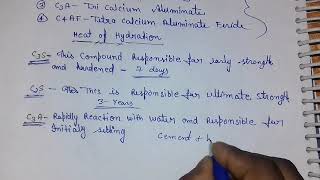 ③ C3A - Tri Calcium Aluminate
④ C4AF - Tetra calcium Aluminate Feride
Heat of Hydration
C3S - This Compound Responsible for early strength
and hardened - 7 days
C2S - This is Responsible for ultimate strength
3-Years
C3A - Rapidly Reaction with water and Responsible for
Initially setting
Cement +